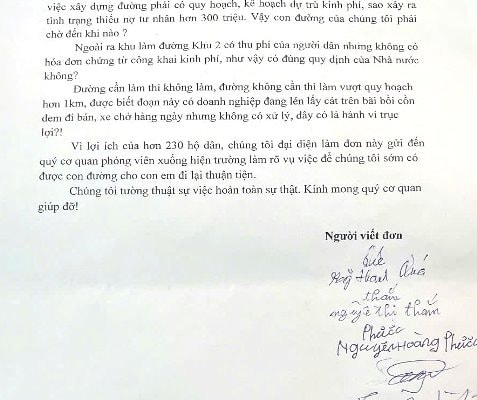 việc xây dựng đường phải có quy hoạch, kế hoạch dự trù kinh phí, sao xảy ra
tình trạng thiếu nợ tư nhân hơn 300 triệu. Vậy con đường của chúng tôi phải
chờ đến khi nào ?
Ngoài ra khu làm đường Khu 2 có thu phí của người dân nhưng không có
hóa đơn chứng từ công khai kinh phí, như vậy có đúng quy định của Nhà nước
không?
Đường cần làm thì không làm, đường không cần thì làm vượt quy hoạch
hơn 1km, được biết đoạn này có doanh nghiệp đang lên lấy cát trên bãi bồi cồn
đem đi bán, xe chở hàng ngày nhưng không có xử lý, đây có là hành vi trục
lợi?!
Vì lợi ích của hơn 230 hộ dân, chúng tôi đại diện làm đơn này gửi đến
quý cơ quan phóng viên xuống hiện trường làm rõ vụ việc để chúng tôi sớm có
được con đường cho con em đi lại thuận tiện.
Chúng tôi tường thuật sự việc hoàn toàn sự thật. Kính mong quý cơ quan
giúp đỡ!
Người viết đơn
thắm
nguyễn thi thắm
Phước
Nguyễn Hoàng Phước